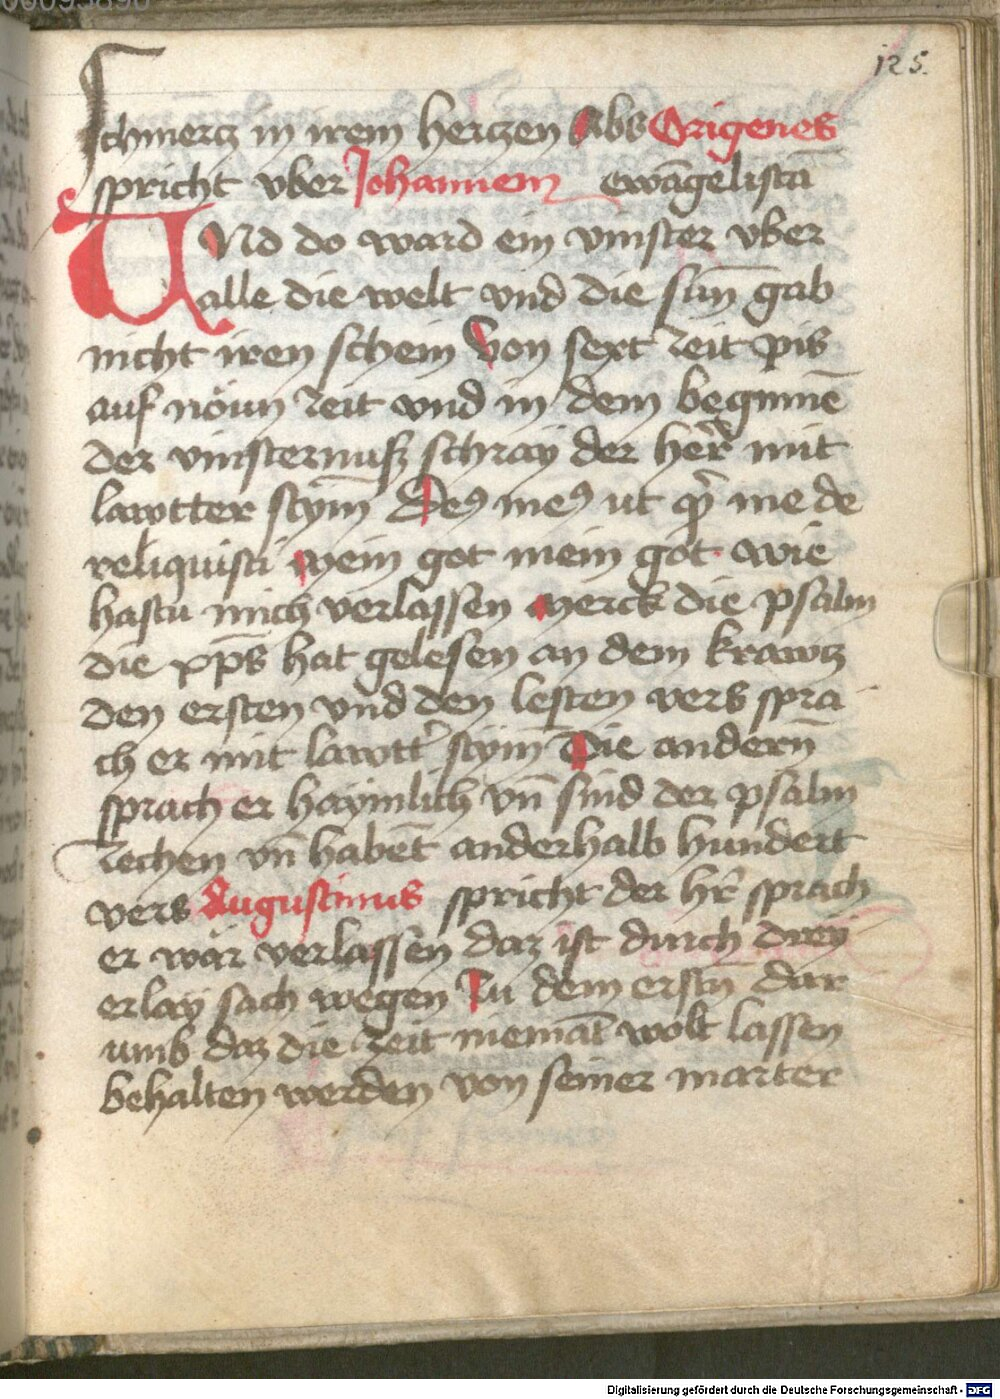 125.
schmercz in irem herczen Abs Origenes
spricht vber Johannem ewāgelistā
UNd do ward ein vinster vber
alle die welt vnd die sūn gab
nicht iren schein Von sext zeit pis
auf nöun zeit vnd in dem begīnnē
der vinsternuß schray der her̄ mit
lawtter stym̄ Deꝰ meꝰ ut q̄ me de
reliquisti Mein got mein got wie
hastu mich verlassen Merck die psalm
die xp̄s hat gelesen an dem krawcz
den ersten vnd den lesten vers spra
ch er mit lawtt̓ stym̄ Die andern̄
sprach er haymlich vn̄ sind der psalm
zechen vn̄ habēt anderhalb hundert
vers Augustinus spricht der hr̄ sprach
er wär verlassen daz ist durch drey
erlay sach wegen Zu dem erstn̄ dar
umb daz die zeit niemāt wolt lassen
behalten werden von seiner marter
Digitalisierung gefördert durch die Deutsche Forschungsgemeinschaft - DFG